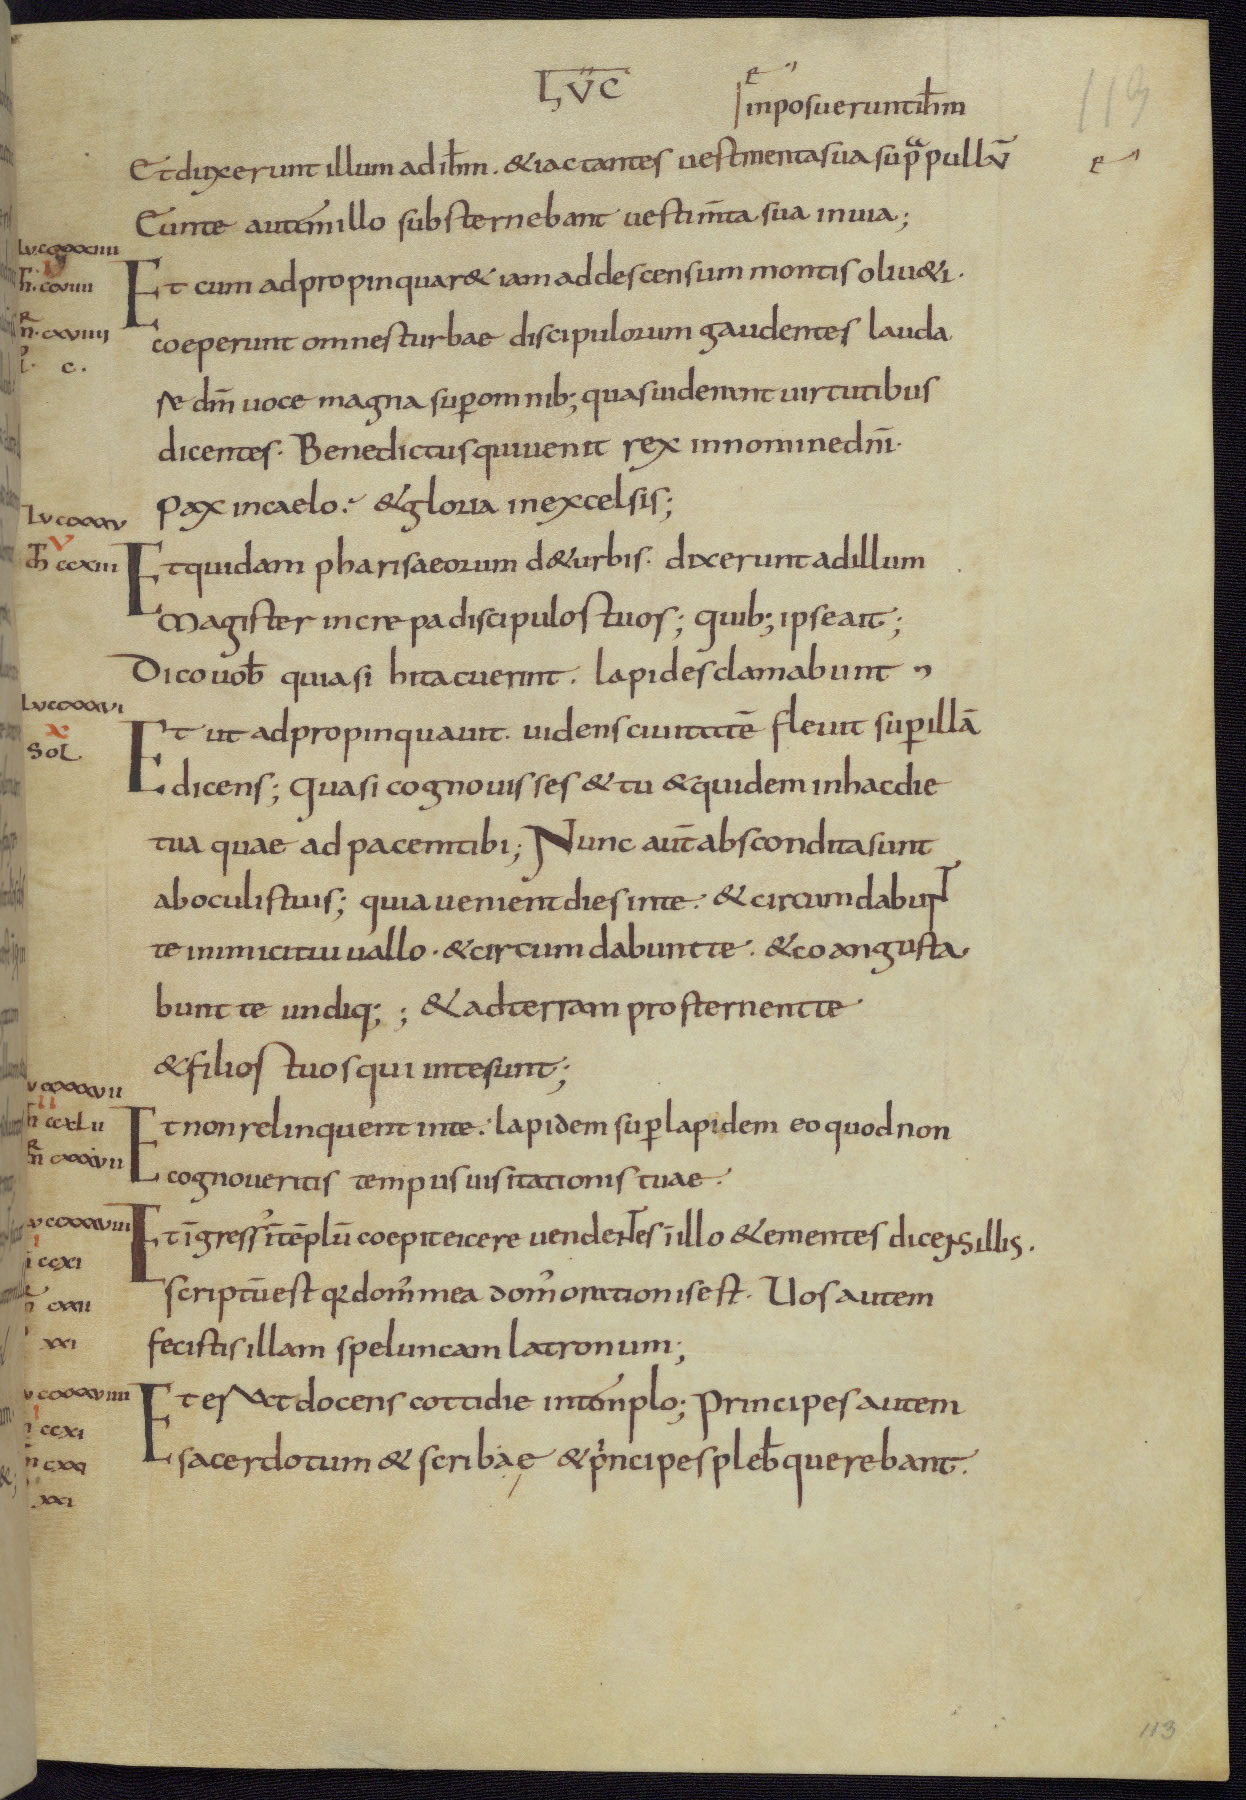 LVC
113
imposuerunt ih̅m
Et duxerunt illum ad ih̅m. & iactantes uestimenta sua supra pullū
Eunte autem illo substernebant uestim̅ta sua in uia;
Et cum adpropinquar& iam ad descensum montis oliu&i.
coeperunt omnes turbae discipulorum gaudentes lauda
re dm̅ uoce magna sup̱ omnib; quas uiderant uirtutibus
dicentes. Benedictus qui uenit rex in nomine dn̅i.
Pax in caelo. & gloria in excelsis;
Et quidam pharisaeorum d& urbis. dixerunt ad illum
Magister increpa discipulos tuos; quib; ipse ait;
Dico uob̅ quia si hi tacuerint. lapides clamabunt
Et ut adpropinquauit. uidens ciuitatē fleuit sup̱ illā
dicens; Quasi cognouisses & tu & quidem in hac die
tua quae ad pacem tibi; Nunc aut̅ abscondita sunt
ab oculis tuis; quia uenient dies in te. & circumdabunt
te inimici tui uallo. & circumdabunt te. & coangusta
bunt te undiq;; & ad terram prosternent te
& filios tuos qui in te sunt;
Et non relinquent in te. lapidem sup̱ lapidem eo quod non
cognoueritis tempus uisitationis tuae.
Et īgress' ī tēplū coepit eicere uendentes ī illo & ementes dicens illis.
scriptū est q̅ dom' mea dom' orationis est. Uos autem
fecistis illam speluncam latronum;
Et erat docens cottidie in templo; Principes autem
sacerdotum & scribae & p'ncipes pleb̅ querebant.
113